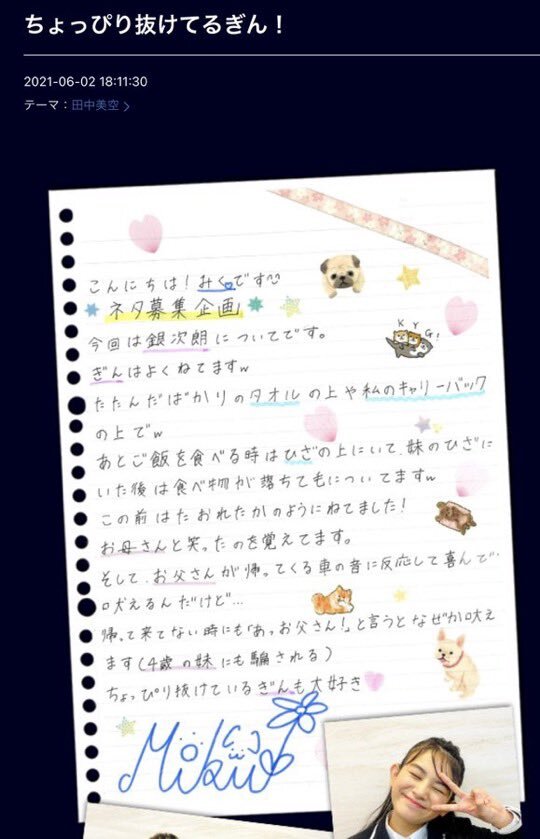 ちょっぴり抜けてるぎん！
2021-06-02 18:11:30
テーマ：田中美空
こんにちは！みくです
ネタ募集企画
今回は銀次朗についてです。
KYG!
ぎんはよくねてますw
たたんだばかりのタオルの上や私のキャリーバック
の上でw
あとご飯を食べる時はひざの上にいて、妹のひざに
いた後は食べ物が落ちてもについてますw
この前はたおれたかのようにねてました！
お母さんと笑ったのを覚えてます。
そして、お父さんが帰ってくる車の音に反応して喜んで
吠えるんだけど…
帰って来てない時にも「あっお父さん！」と言うとなぜか吠え
ます(4歳の妹にも騙される)
ちょっぴり抜けているぎんも大好き
Miku